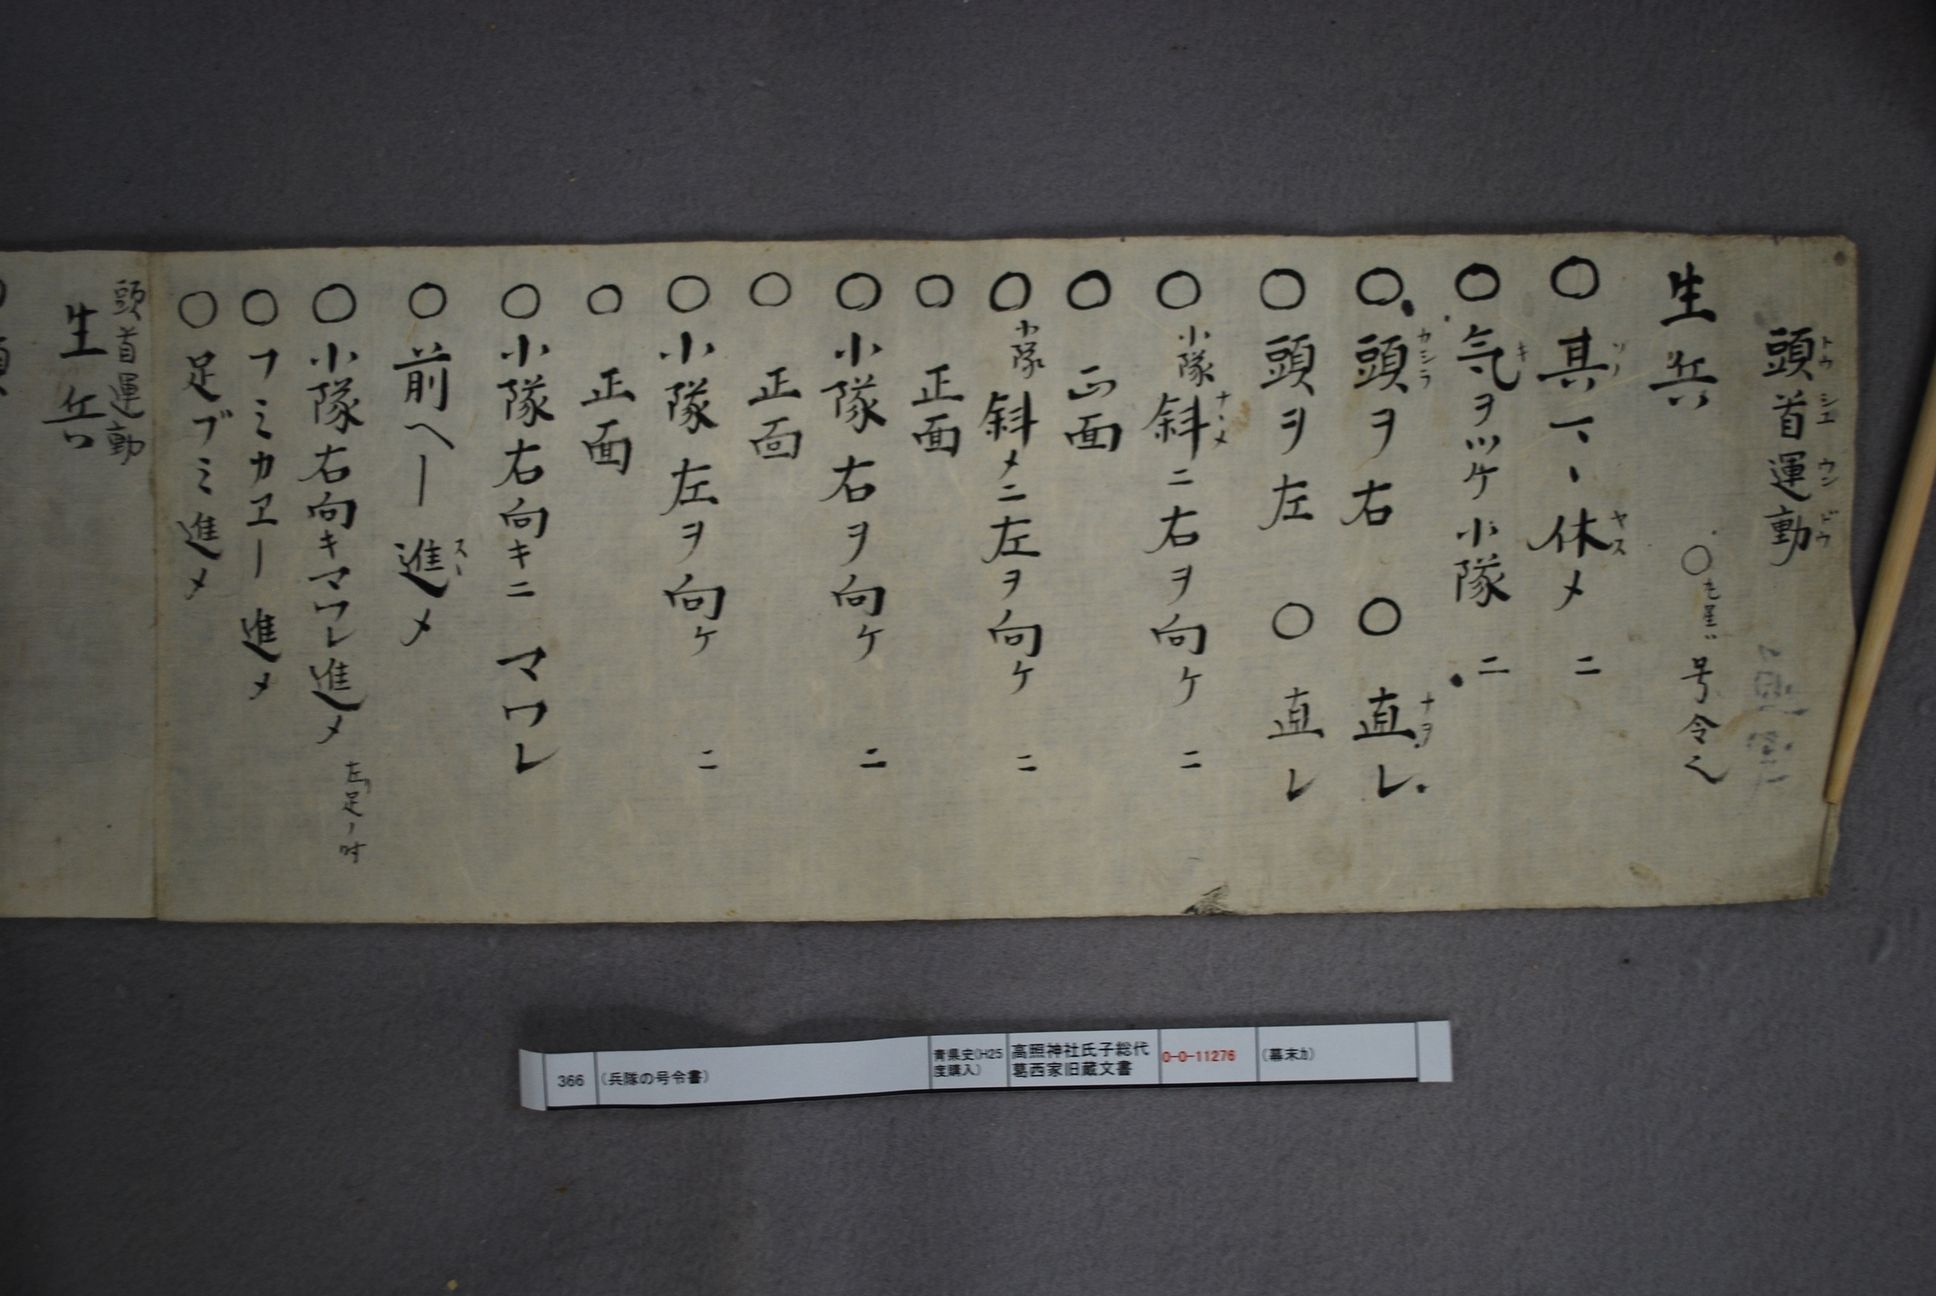 頭首運動
トウシユウンドウ
生兵 ○ 号令
○其マヽ休メ 二
ソノ ヤス
○気ヲツケ小隊 二
キ
○頭ヲ右 ○直レ
カシラ ナヲ
○頭ヲ左 ○直レ
○小隊斜ニ右ヲ向ケ 二
ナヽメ
○正面
○小隊斜メニ左ヲ向ケ 二
○正面
○小隊右ヲ向ケ 二
○正面
○小隊左ヲ向ケ 二
○正面
○小隊右向キニマワレ
○前ヘー進メ
スー
○小隊右向キマワレ進メ 左足ノ時
○フミカヱー進メ
○足ブミ進メ
頭首運動
生兵
366
(兵隊の号令書)
青県史(H25
度購入)
高照神社氏子総代
葛西家旧蔵文書
0-0-11276
(幕末カ)